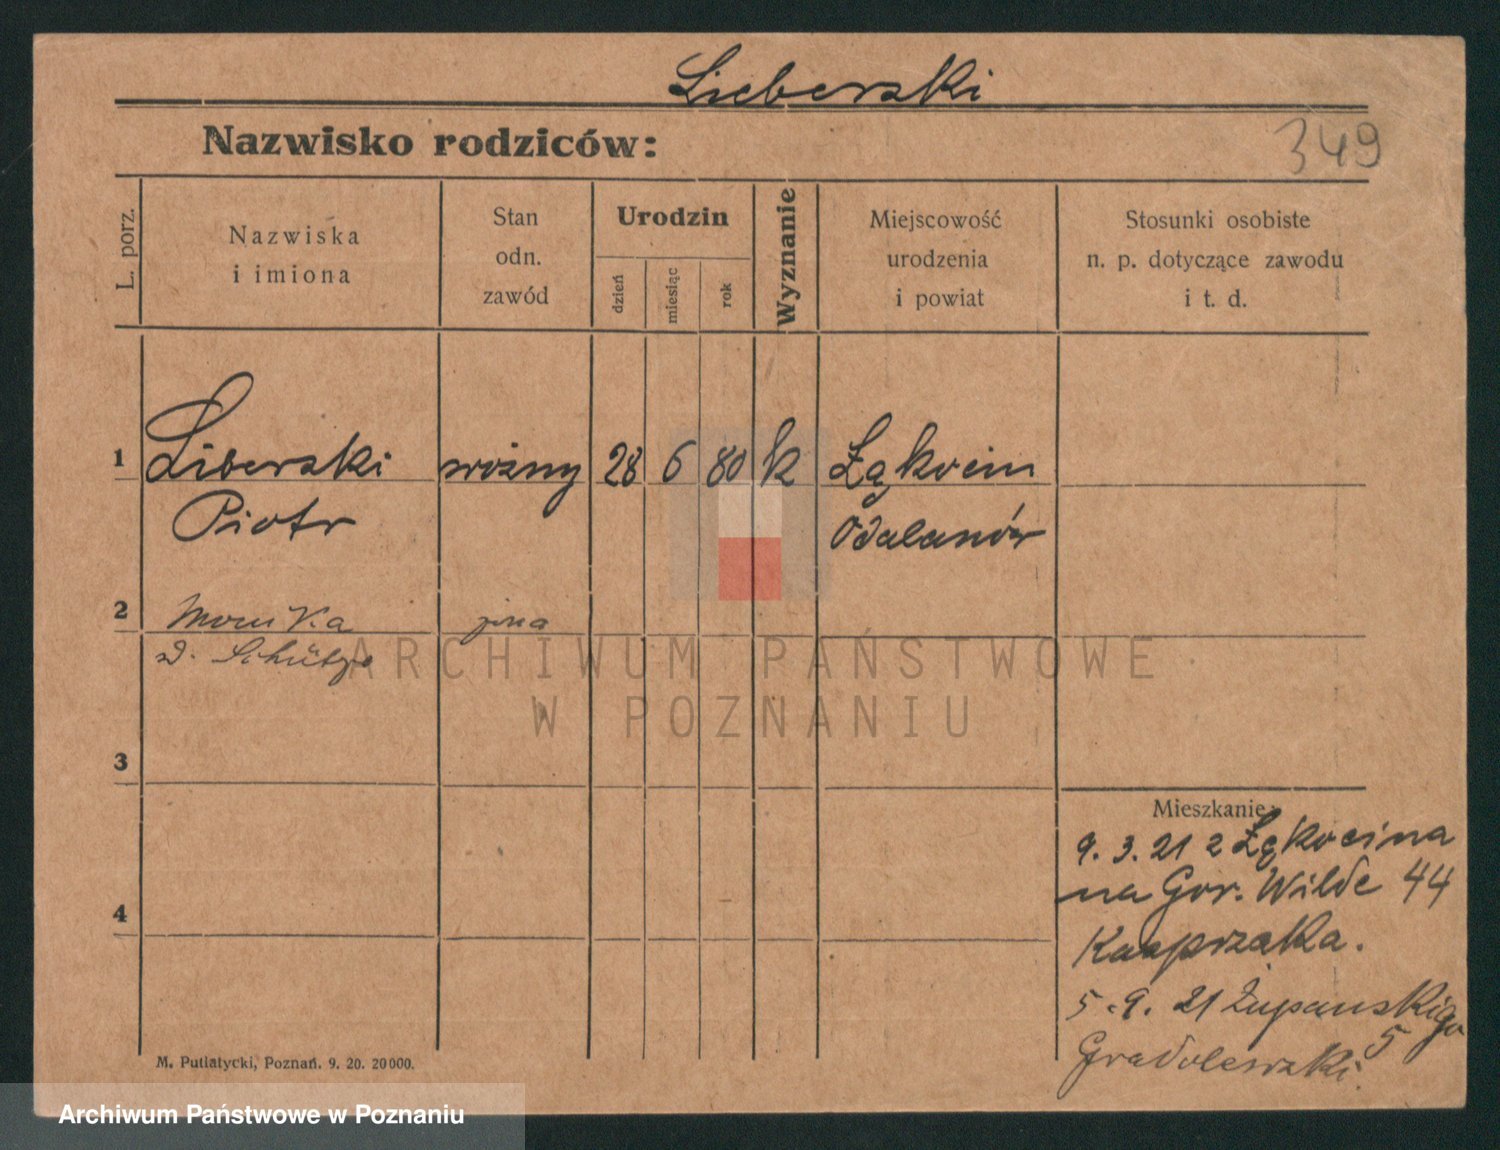 Lieberski
Nazwisko rodziców:
349
L. porz.
Nazwiska
i imiona
Stan
odn.
zawód
Urodzin
dzień
miesiąc
rok
Wyznanie
Miejscowość
urodzenia
i powiat
Stosunki osobiste
n. p. dotyczące zawodu
i t. d.
1
Liberski woźny 28 6 80 k Łąkocin
Piotr Odalanów
2
Monika żona
d. Schütze
3
4
Mieszkanie:
9. 3. 21 z Łąkocina
na Gór. Wilde 44
Kasprzaka.
5. 9. 21 Żupanskigo
5
Gradolewski.
M. Putiatycki, Poznań. 9. 20. 20000.
ARCHIWUM PAŃSTWOWE
W POZNANIU
Archiwum Państwowe w Poznaniu